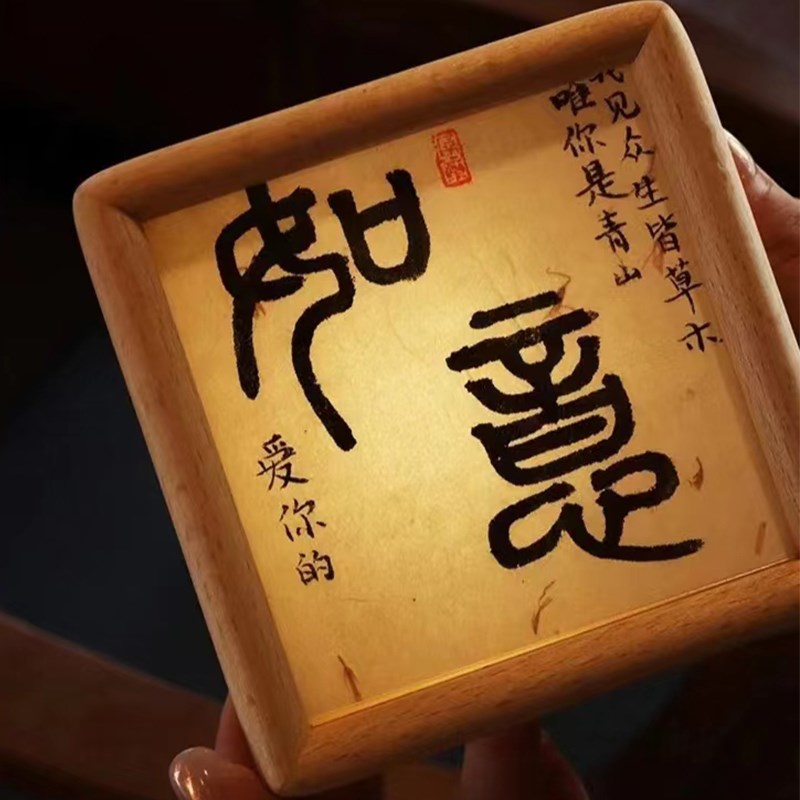 我见众生皆草木
唯你是青山
如意
爱你的